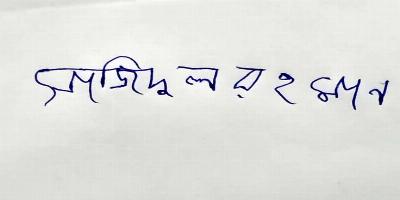 সাজিদুল রহমান